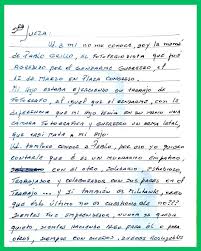 Sra
Jueza:
Ud. a mi no me conoce, soy la mamá
de Pablo Grillo, el fotoperiodista que fue
por el gendarme Guerrero, el
12 de marzo en Plaza Congreso.
Mi hijo estaba ejerciendo su trabajo de
fotógrafo, al igual que el gendarme, con la
diferencia que mi hijo tenía en su mano una
cámara fotográfica y Guerrero un arma letal,
que casi mata a mi hijo.
Ud. tampoco conoce a Pablo, por eso yo quiero
contarle que él es un muchacho
con el otro, solidario,
trabajador y colaborador con sus pares en el
trabajo... y sí también es militante,
que esto último no es cuestionable no???
siempre fue, nunca se
quieto, siempre haciendo algo para él o para
otros, siempre con sueños, nuevos